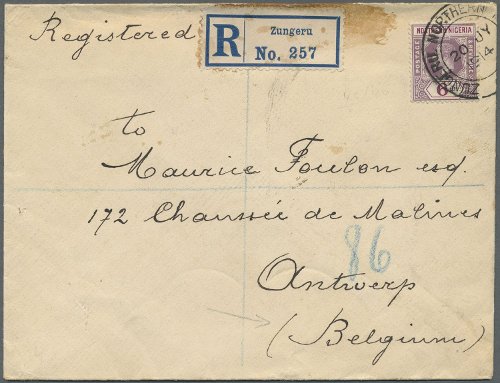 Registered
R
Zungeru
No. 257
NORTHERN NIGERIA
POSTAGE
6
ZUNGERU NORTHERN
20 JY
14
to
Maurice Foulon esq.
172 Chaussée de Malines
86
Antwerp
(Belgium)